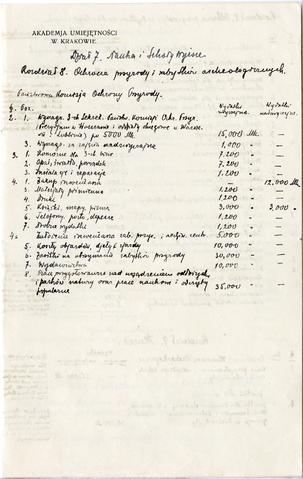 AKADEMJA UMIEJĘTNOŚCI
W KRAKOWIE.
Dział 7. Nauka i Szkoły Wyższe
Rozdział 8. Ochrona przyrody i zabytków archeologicznych.
Państwowa Komisja Ochrony Przyrody.
§. Poz. Wydatki zwyczajne. Wydatki nadzwyczajne.
2. 1. Wynagr. 3-ch Sekret. Państw. Komisji Ochr. Przyr.
w Lublinie) po 5000 Mk. 15,000 Mk.
3. Wynagr. za zajęcia nadzwyczajne 1,000 "
3. 1. Komorne dla 3-ch biur 7,200 "
2. Opał, światło, porządek 7,200 "
3. Instalacje i reperacje 1,200 "
4. 1. Zakup inwentarza — 12,000 Mk.
3. Materjały piśmienne 1,200 "
4. Druki 1,200 "
5. Książki, mapy, pisma 3,000 " 2,000 "
6. Telefony, porto, depesze 1,200 "
7. Drobne wydatki 1,200 "
5,000 "
5. Koszty objazdów, djety i zjazdy 10,000 "
6. Zasiłki na utrzymanie zabytków przyrody 20,000 "
7. Wydawnictwa 10,000 "
8. Prace przygotowawcze nad urządzeniem
i parków natury oraz prace naukowe i odczyty
popularne 35,000 "